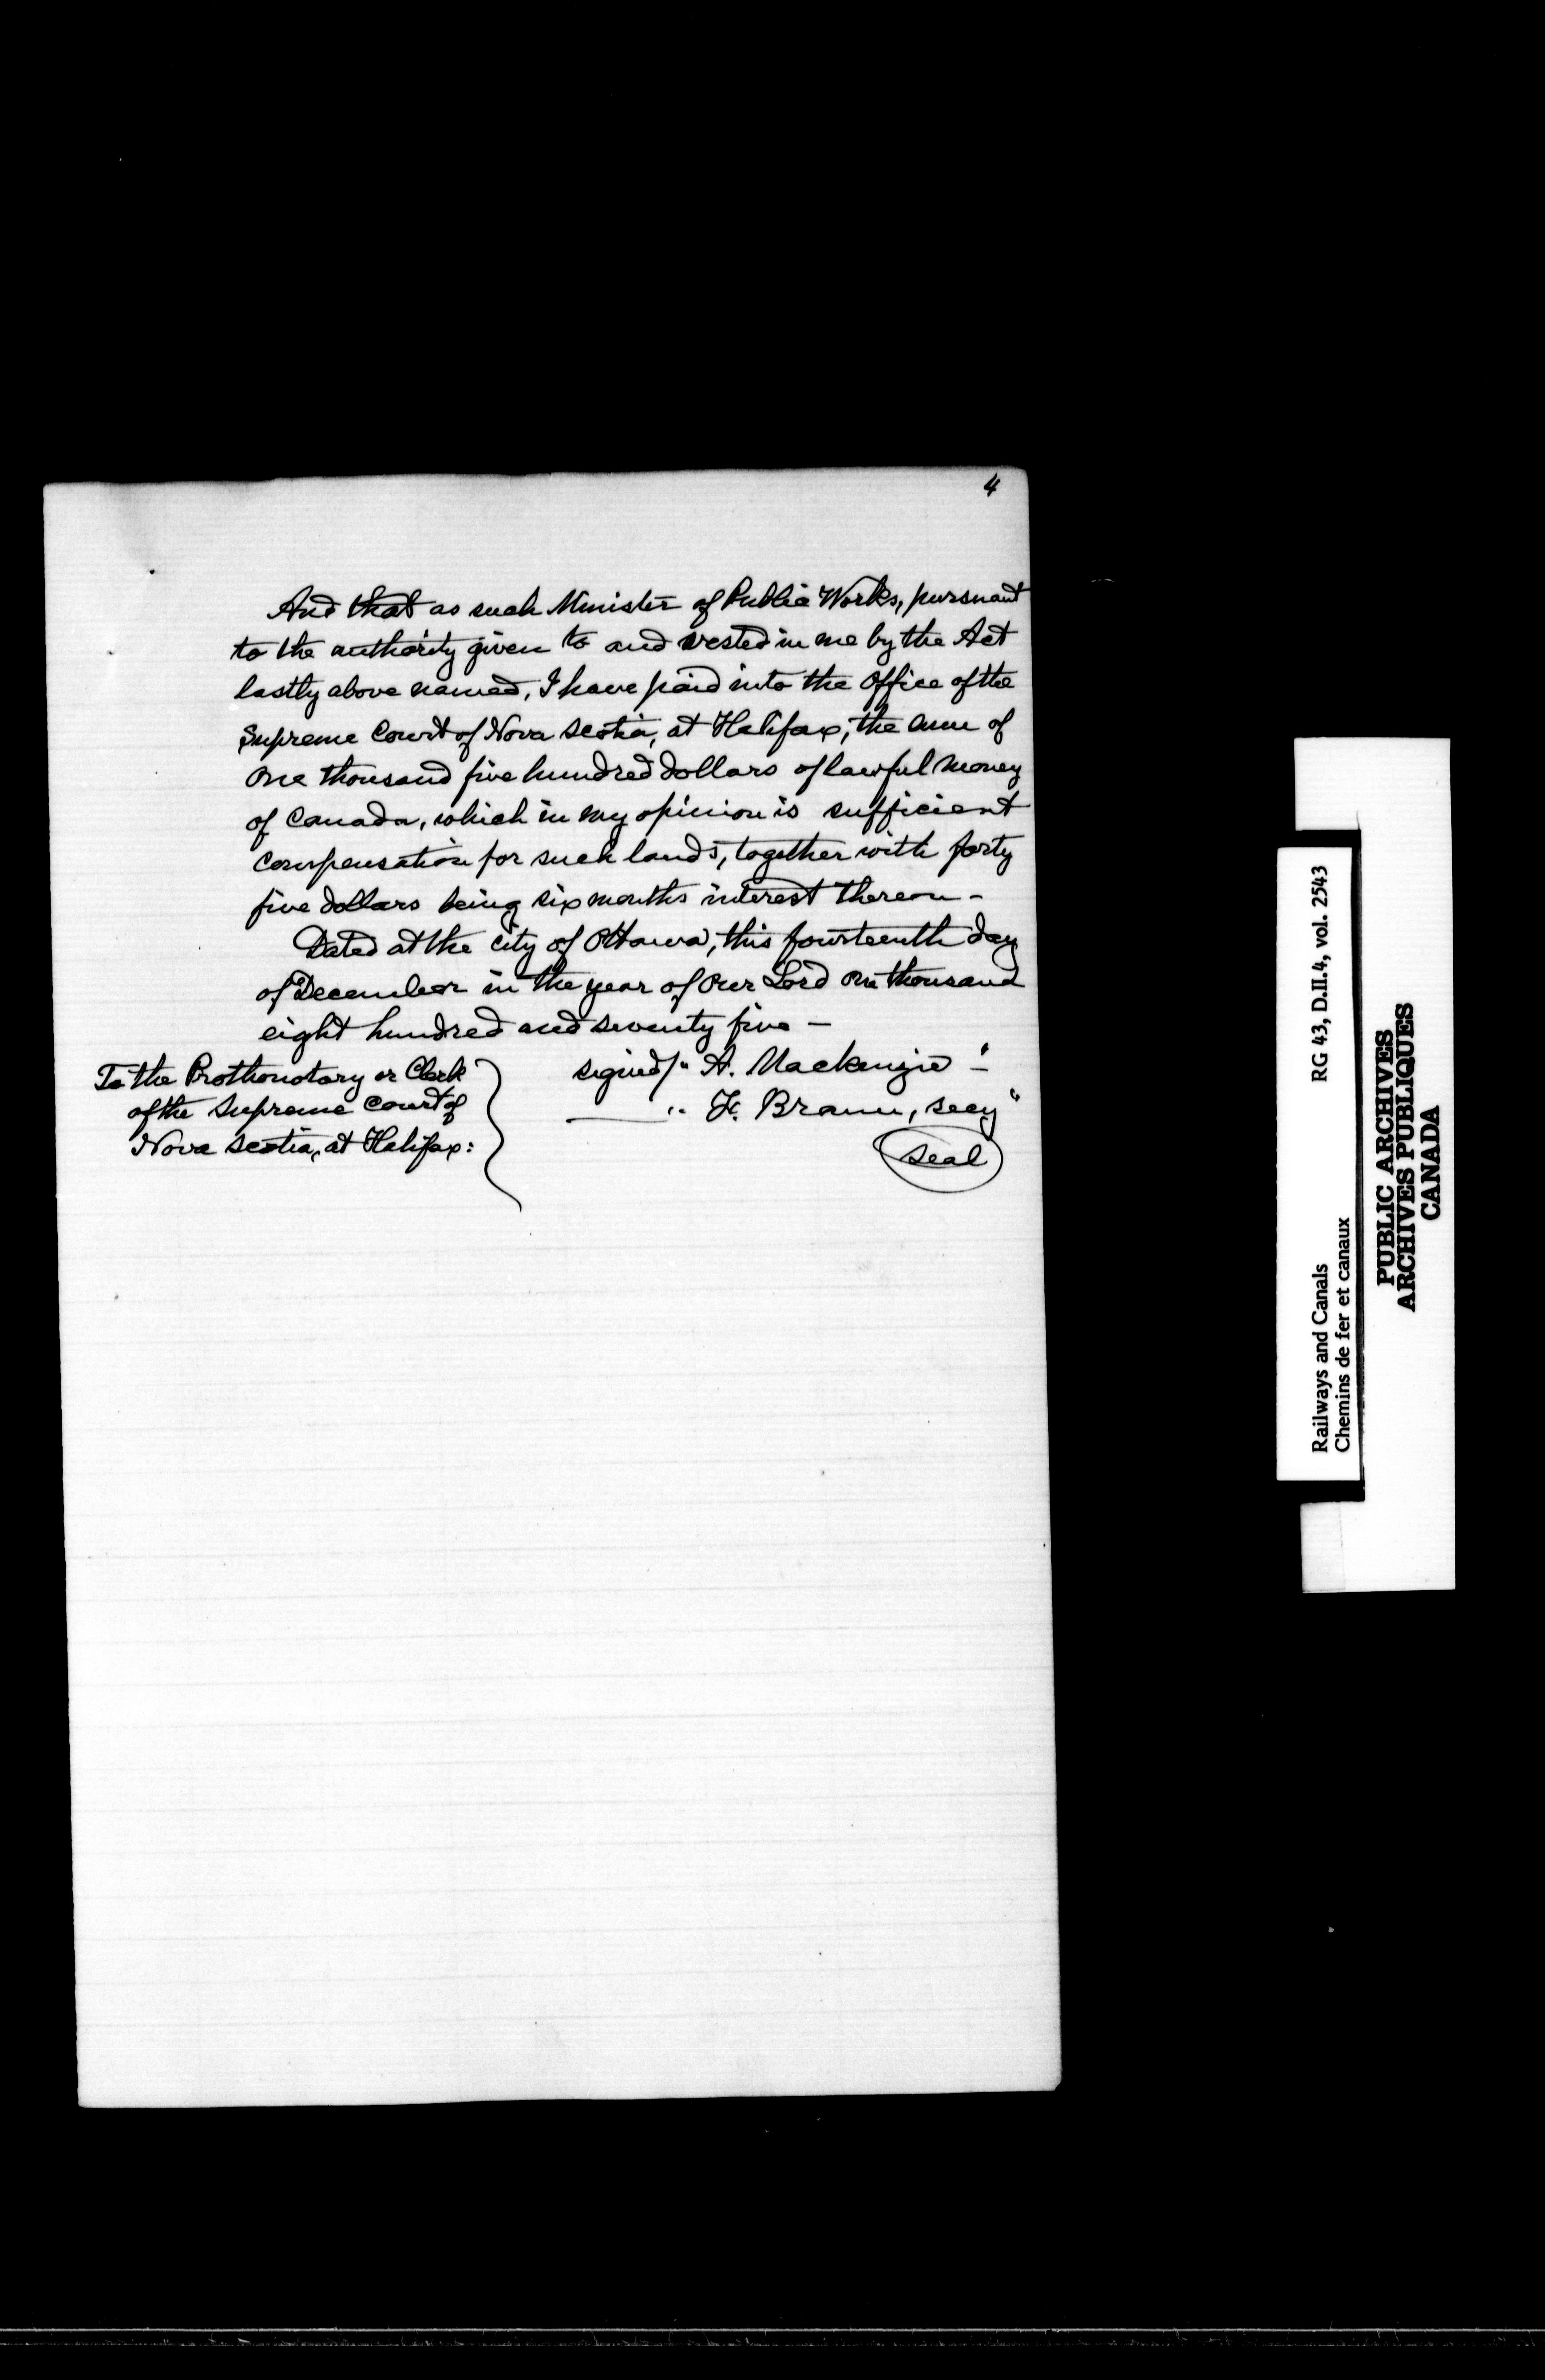 4
And that as such Minister of Public Works, pursuant
to the authority given to and vested in me by the Act
lastly above named, I have paid into the Office of the
Supreme Court of Nova Scotia, at Halifax, the sum of
One thousand five hundred dollars of lawful money
of Canada, which in my opinion is sufficient
compensation for such lands, together with forty
five dollars being six months interest thereon -
Dated at the city of Ottawa, this fourteenth day
of December in the year of Our Lord One thousand
eight hundred and seventy five —
To the Prothonotary or Clerk
of the Supreme Court of
Nova Scotia, at Halifax:
signed/ " A. Mackenzie " -
" F. Braun, secy "
seal
RG 43, D.II.4, vol. 2543
Railways and Canals
Chemins de fer et canaux
PUBLIC ARCHIVES
ARCHIVES PUBLIQUES
CANADA